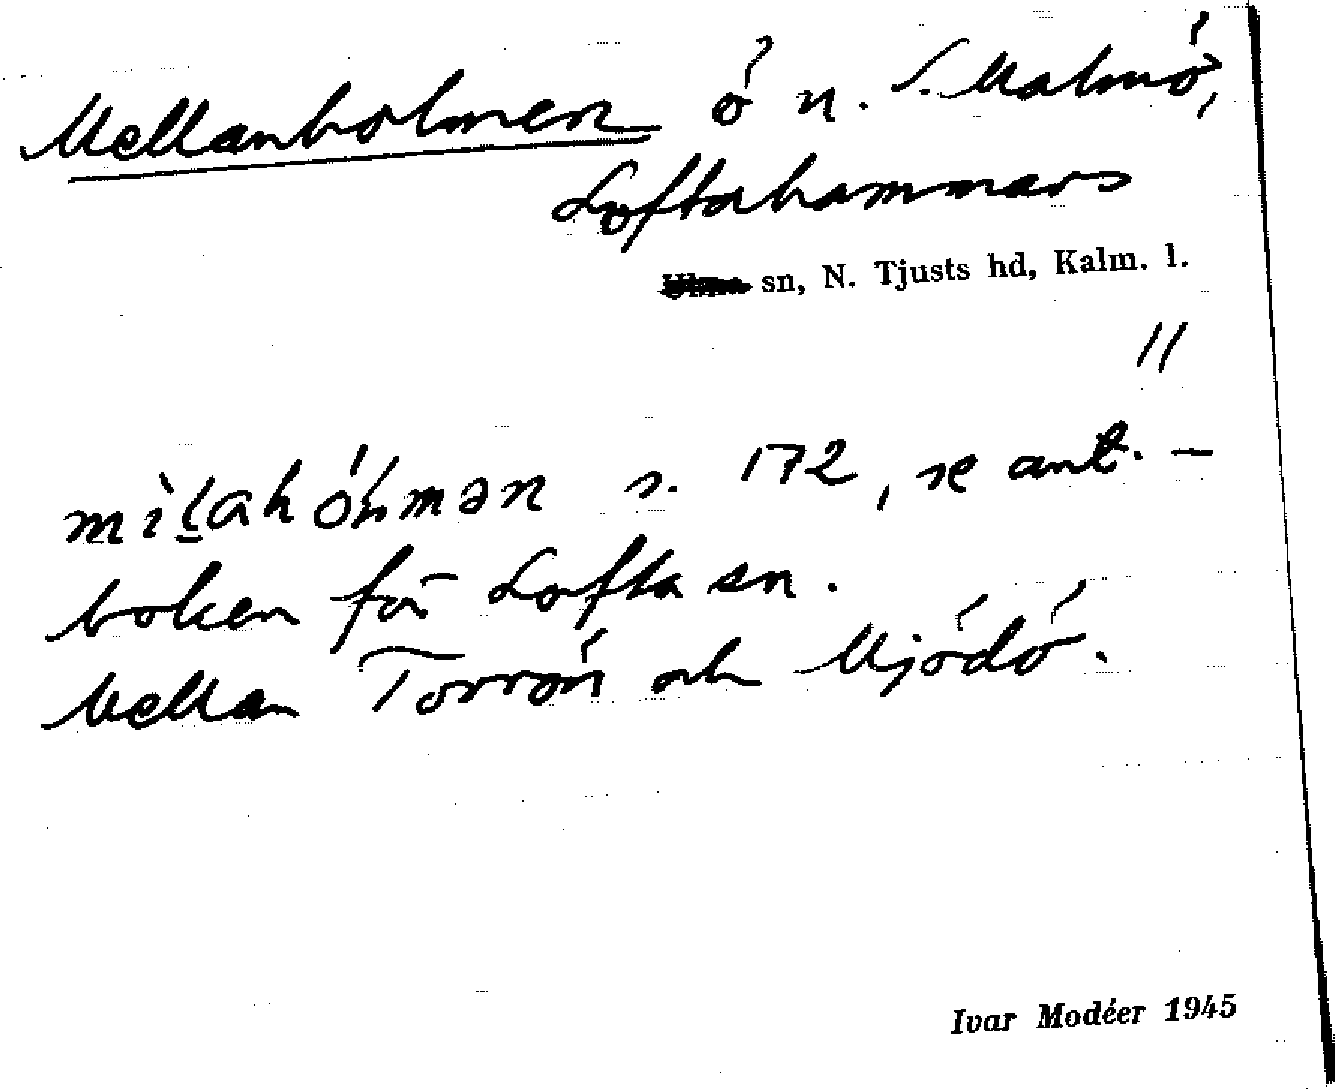 Mellanholmen ö n. S. Malmö,
Loftahammars
sn, N. Tjusts hd, Kalm. l.
11
s. 172, se ant.-
boken för Lofta sn.
Mellan Torrön och Mjödö.
Ivar Modéer 1945